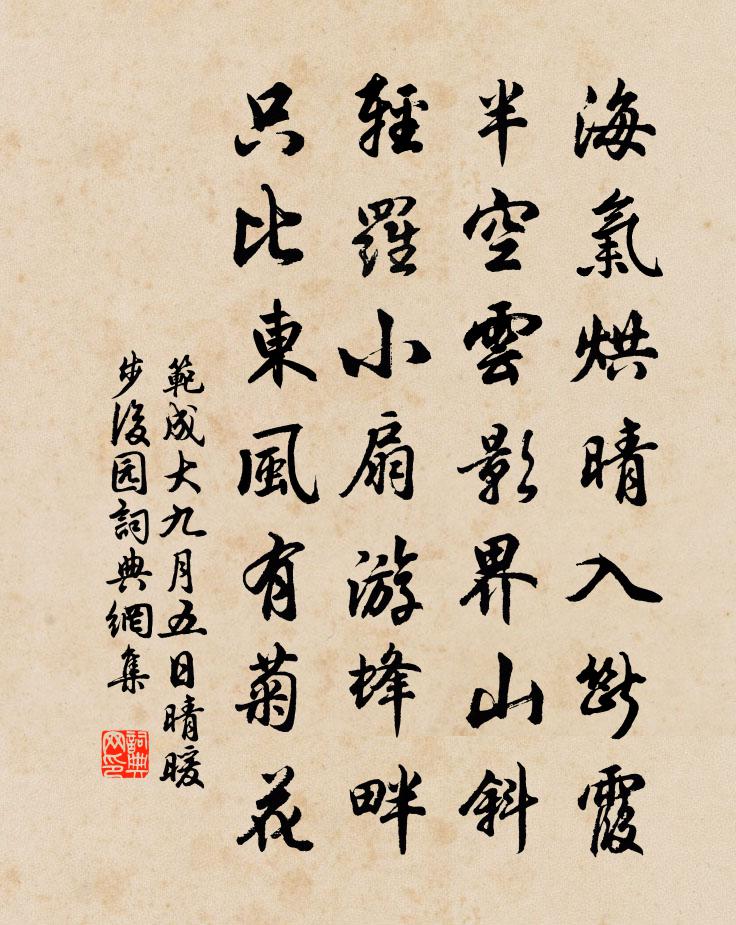 海氣烘晴入断霞
半空雲影界山斜
輕羅小扇游蜂畔
只比東風有菊花
範成大九月五日晴暖
步後园詞典網集
詞典网印